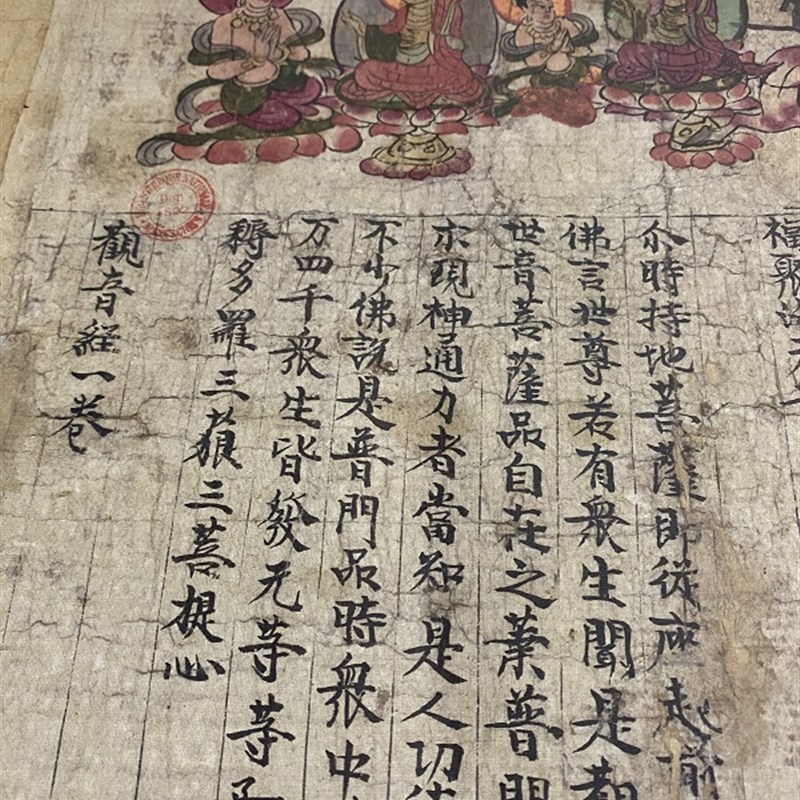 福聚海无
尒時持地菩薩即從座起前
佛言世尊若有衆生聞是觀
世音菩薩品自在之業普門
示現神通力者當知是人功
不少佛說是普門品時衆中
万四千衆生皆發无等等
耨多羅三藐三菩提心
觀音經一卷